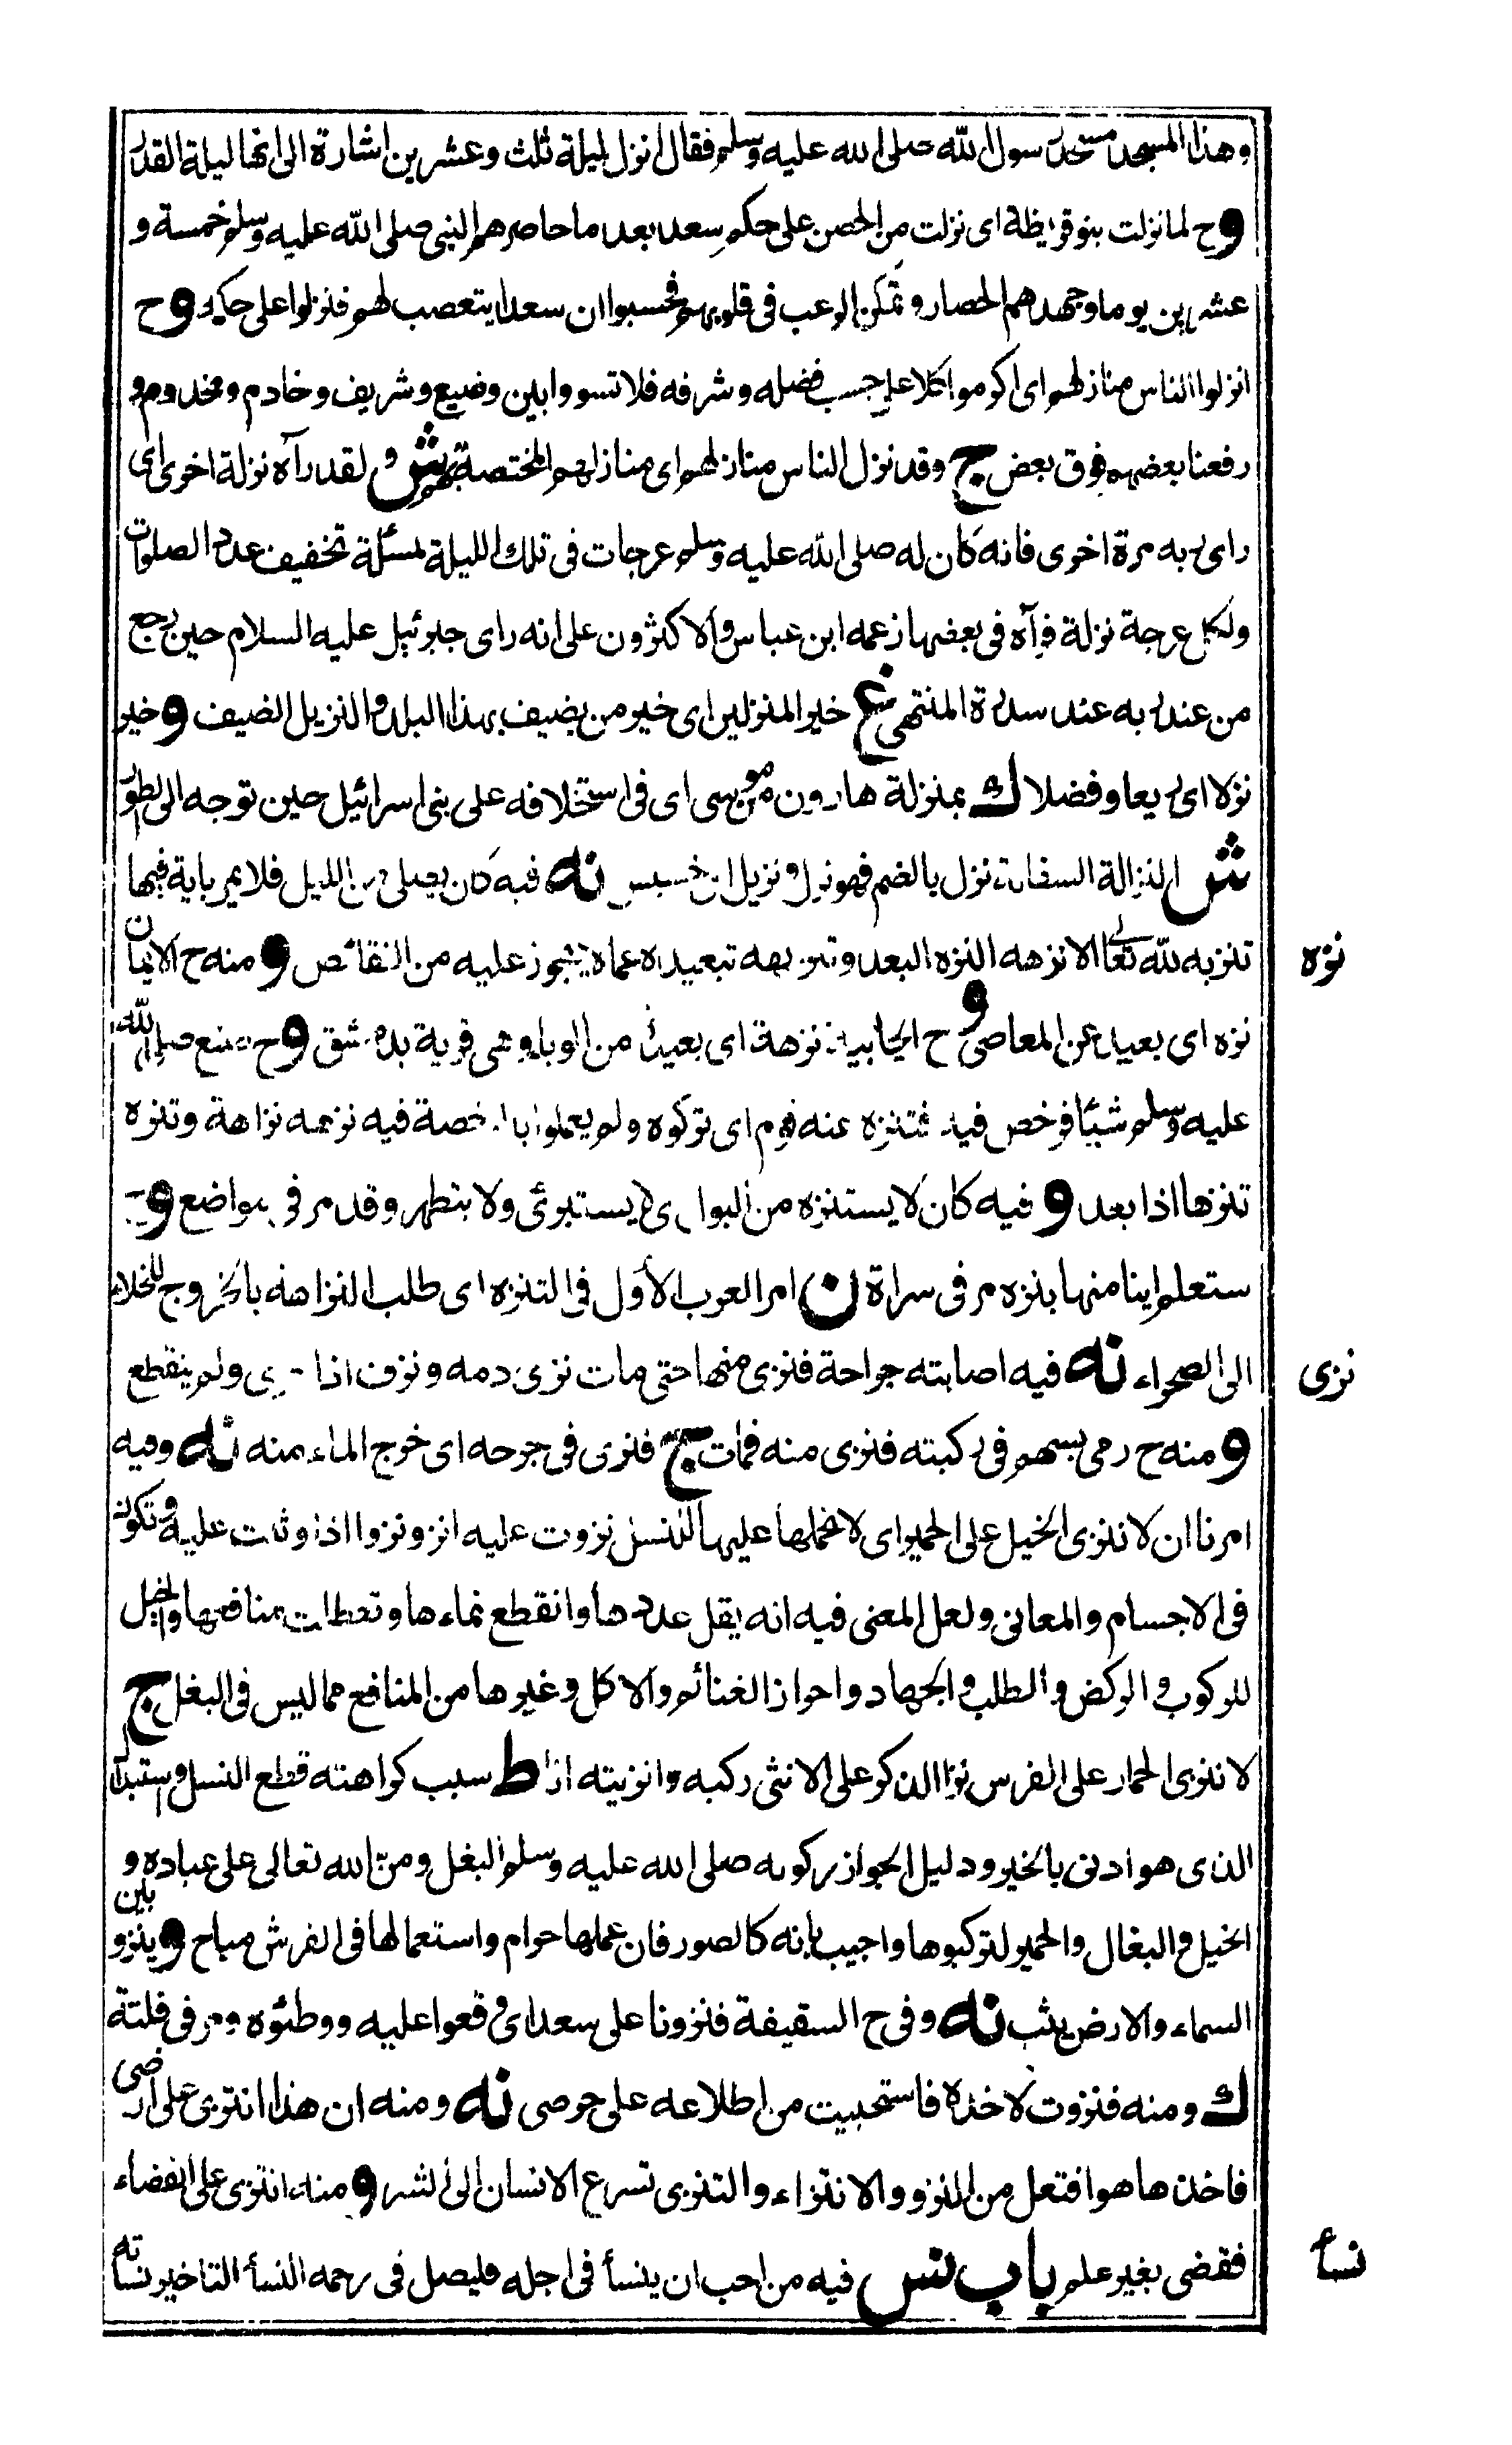 وهذا المسجد مسجد رسول الله صلى الله عليه وسلم فقال انزل ليلة ثلث وعشرين اشارة الى انها ليلة القدر
وح لما نزلت بنو قريظة اى نزلت من الحصن على حكم سعد بعد ما حاصرهم النبى صلى الله عليه وسلم خمسة و
عشرين يوما وجهدهم الحصار وتمكن الرعب فى قلوبهم فحسبوا ان سعدا يتعصب لهم فنزلوا على حكمه وح
انزلوا الناس منازلهم اى اكرموا كلا على حسب فضله وشرفه فلا تسووا بين وضيع وشريف وخادم ومخدوم و
رفعنا بعضهم فوق بعض ج وقد نزل الناس منازلهم اى منازلهم المختصة بهم ش و لقد رآه نزلة اخرى اى
راى ربه مرة اخرى فانه كان له صلى الله عليه وسلم عرجات فى تلك الليلة لمسئلة تخفيف عدد الصلوات
ولكل عرجة نزلة فرآه فى بعضها زعمه ابن عباس والاكثرون على انه راى جبرئيل عليه السلام حين رجع
من عند ربه عند سدرة المنتهى غ خير المنزلين اى خير من يضيف بهذا البلد والنزيل الضيف و خير
نزلا اى ريعا وفضلا ك بمنزلة هارون من موسى اى فى استخلافه على بنى اسرائيل حين توجه الى الطور
ش النزالة السفالة نزل بالضم فهو نزل ونزيل اى خسيس نه فيه كان يصلى من الليل فلا يمر باية فيها
تنزيه لله تعالى الا نزهه النزه البعد وتنزيهه تبعيده عما لا يجوز عليه من النقائص و منه ح الايمان
نزه اى بعيد عن المعاصى و ح الجابية نزهة اى بعيدة من الوباء وهى قرية بدمشق وح صنع صلى الله
عليه وسلم شيئا فرخص فيه فتنزه عنه قوم اى تركوه ولم يعملوا بالرخصة فيه نزهه نزاهة وتنزه
تنزها اذا بعد و فيه كان لا يستنزه من البول اى لا يستبرئ ولا يتطهر وقد مر فى مواضع وح
ستعلم اينا منها بنزه مر فى سراة ن امر العرب الأول فى التنزه اى طلب النزاهة بالخروج للخلاء
الى الصحراء نه فيه اصابته جراحة فنزى منها حتى مات نزى دمه ونزف اذا جرى ولم ينقطع
و منه ح رمى بسهم فى ركبته فنزى منه فمات ج فنزى فى جرحه اى خرج الماء منه نه وفيه
امرنا ان لا ننزى الخيل على الحمير اى لا نحملها عليها للنسل نزوت عليه انزو نزوا اذا وثبت عليه وتكون
فى الاجسام والمعانى ولعل المعنى فيه انه يقل عددها وانقطع نماءها وتعطلت منافعها والخيل
للركوب والركض والطلب والجهاد واحراز الغنائم والاكل وغيرها من المنافع مما ليس فى البغل ج
لا ننزى الحمار على الفرس نزا الذكر على الانثى ركبه وانزيته انا ط سبب كراهته قطع النسل واستبدال
الذى هو ادنى بالخير ودليل الجواز ركوبه صلى الله عليه وسلم البغل ومن الله تعالى على عباده و
الخيل والبغال والحمير لتركبوها واجيب بانه كالصور فان عملها حرام واستعمالها فى الفرش مباح و ينزو بين
السماء والارض يثب نه وفى ح السقيفة فنزونا على سعد اى وقعوا عليه ووطئوه ومر فى فلتة
ك و منه فنزوت لاخذه فاستحييت من اطلاعه على حرصى نه ومنه ان هذا انتزى على ارضى
فاخذها هو افتعل من النزو والانتزاء والتنزى تسرع الانسان الى الشر و منه انتزى على القضاء
فقضى بغير علم باب نس فيه من احب ان ينسأ فى اجله فليصل فى رحمه النسأ التاخير نسأته
نزه
نزى
نسأ